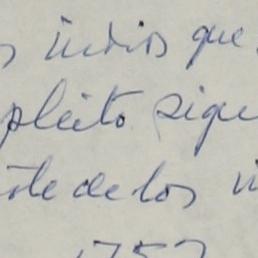 s indios que
pleito sigue
te de los
1757